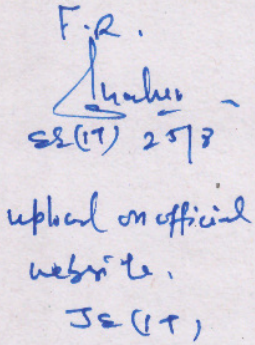 F.R.
SE(IT) 25/8
upload on official
website.
JE(IT)